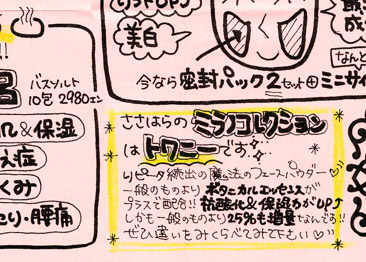 UP♪
美白
最
成
なんと
今なら 密封パック2セット⊕ミニサイ
!!
バスソルト
10包 2980エン
&保湿
え症
くみ
たり・腰痛
ささはらの ミラノコレクション
は トワニーです
リピータ続出の魔法のフェースパウダー♡
一般のものより ボタニカルエッセンスが
プラスで配合!! 抗酸化&保湿力がUP♪
しかも一般のものより 25%も増量なんです!!
ぜひ違いをみくらべてみて下もい♡♡